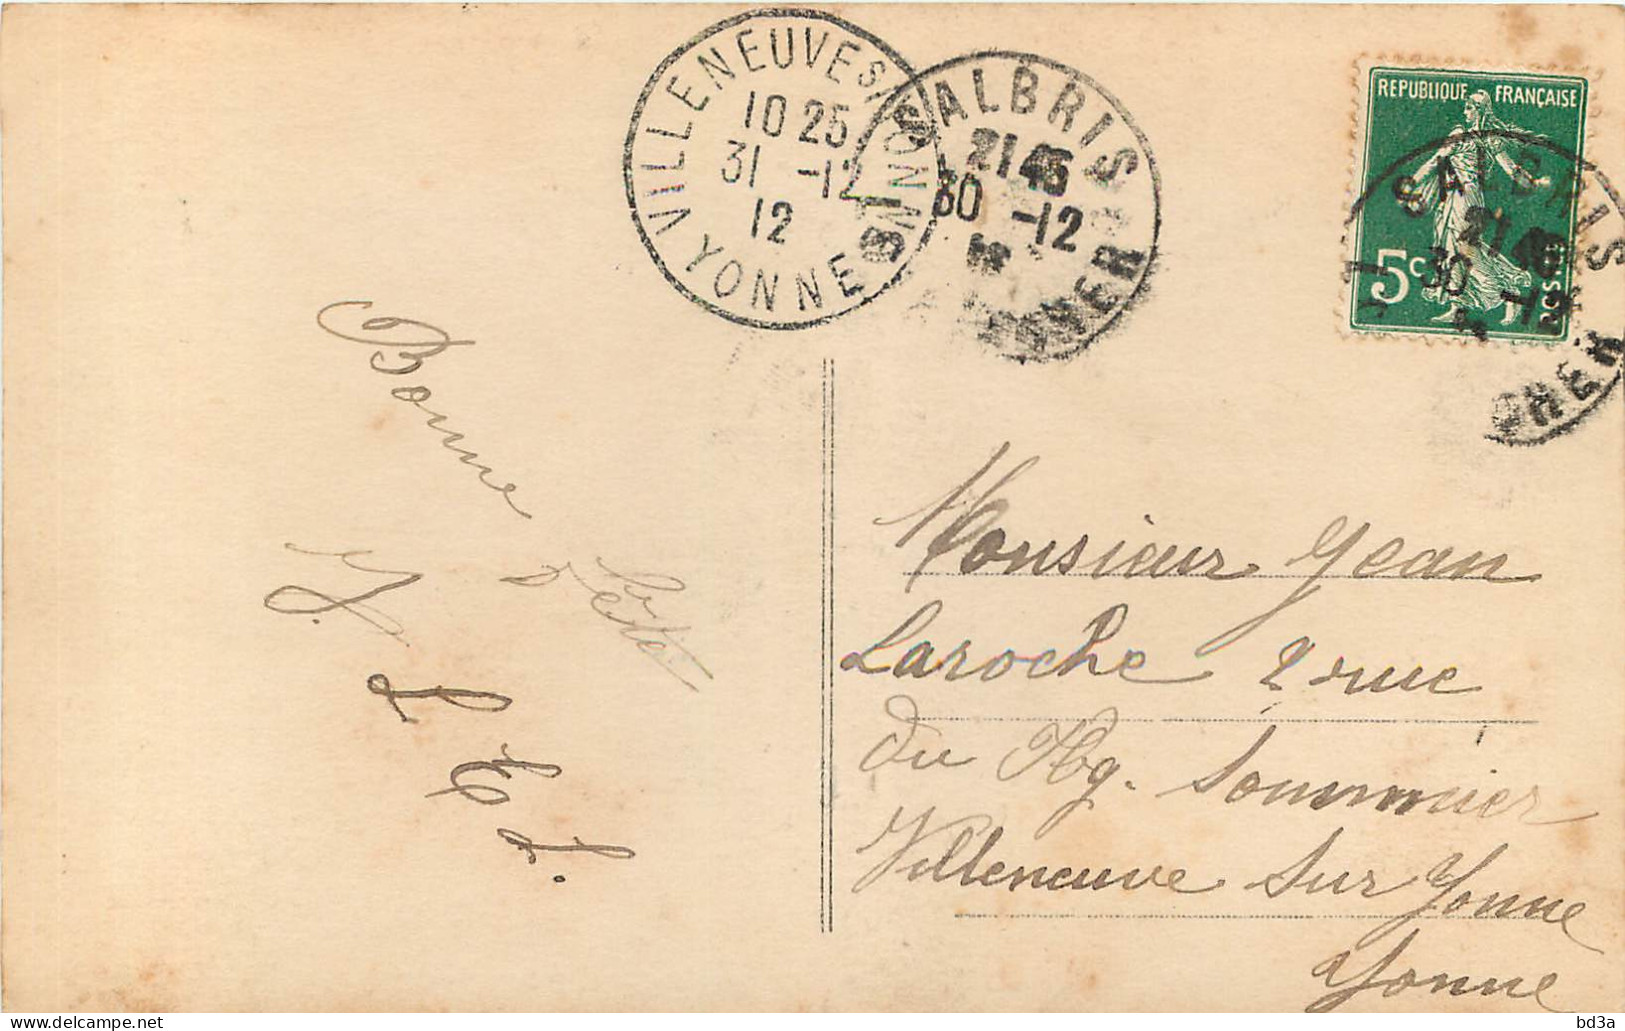 VILLENEUVE S/ YONNE
10 25
31 -12
12
YONNE
SALBRIS
21 45
30 -12
CHER
REPUBLIQUE FRANÇAISE
5c
POSTES
SALBRIS
21 45
30 -12
CHER
Bonne
Monsieur Jean
Laroche 2 rue
du Fbg. Sommier
Villeneuve Sur Yonne
Yonne
bd3a